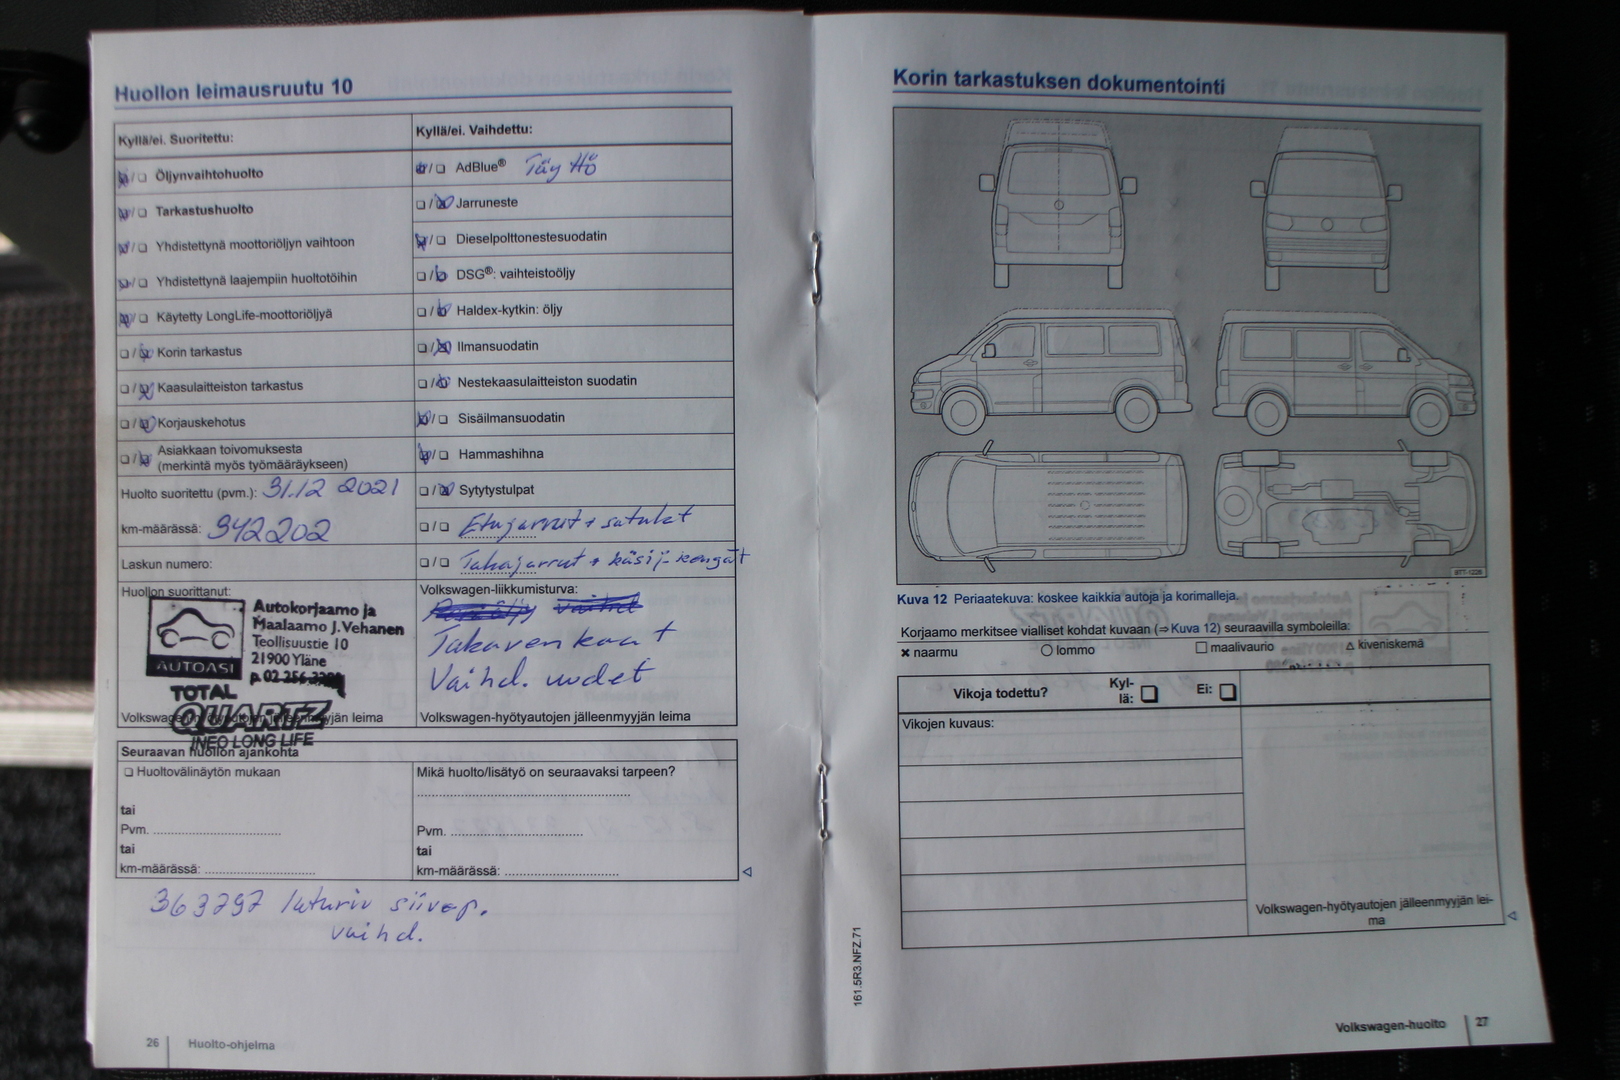 Huollon leimausruutu 10
Kyllä/ei. Suoritettu:
Öljynvaihtohuolto
Tarkastushuolto
Yhdistettynä moottoriöljyn vaihtoon
Yhdistettynä laajempiin huoltotöihin
Käytetty LongLife-moottoriöljyä
Korin tarkastus
Kaasulaitteiston tarkastus
Korjauskehotus
Asiakkaan toivomuksesta
(merkintä myös työmääräykseen)
Huolto suoritettu (pvm.): 31.12 2021
km-määrässä: 342202
Laskun numero:
Huollon suorittanut:
Autokorjaamo ja
Maalaamo J.Vehanen
Teollisuustie 10
21900 Yläne
p. 02-256
AUTOASI
TOTAL
QUARTZ
INEO LONG LIFE
Volkswagen-hyötyautojen jälleenmyyjän leima
Kyllä/ei. Vaihdettu:
AdBlue® Täy Hö
Jarruneste
Dieselpolttonestesuodatin
DSG®: vaihteistoöljy
Haldex-kytkin: öljy
Ilmansuodatin
Nestekaasulaitteiston suodatin
Sisäilmansuodatin
Hammashihna
Sytytystulpat
Etujarrut + satulat
Takajarrut + käsij-kengät
Volkswagen-liikkumisturva:
Takaven kaat
Vaihd. uudet
Volkswagen-hyötyautojen jälleenmyyjän leima
Seuraavan huollon ajankohta
Huoltovälinäytön mukaan
tai
Pvm.
tai
km-määrässä:
Mikä huolto/lisätyö on seuraavaksi tarpeen?
Pvm.
tai
km-määrässä:
363797 laturin siivep.
vaihd.
26 Huolto-ohjelma
Korin tarkastuksen dokumentointi
B7T-1226
Kuva 12 Periaatekuva: koskee kaikkia autoja ja korimalleja.
Korjaamo merkitsee vialliset kohdat kuvaan (⇒ Kuva 12) seuraavilla symboleilla:
× naarmu ○ lommo □ maalivaurio △ kiveniskemä
Vikoja todettu? Kyl-
lä: Ei:
Vikojen kuvaus:
Volkswagen-hyötyautojen jälleenmyyjän lei-
ma
161.5R3.NFZ.71
Volkswagen-huolto 27